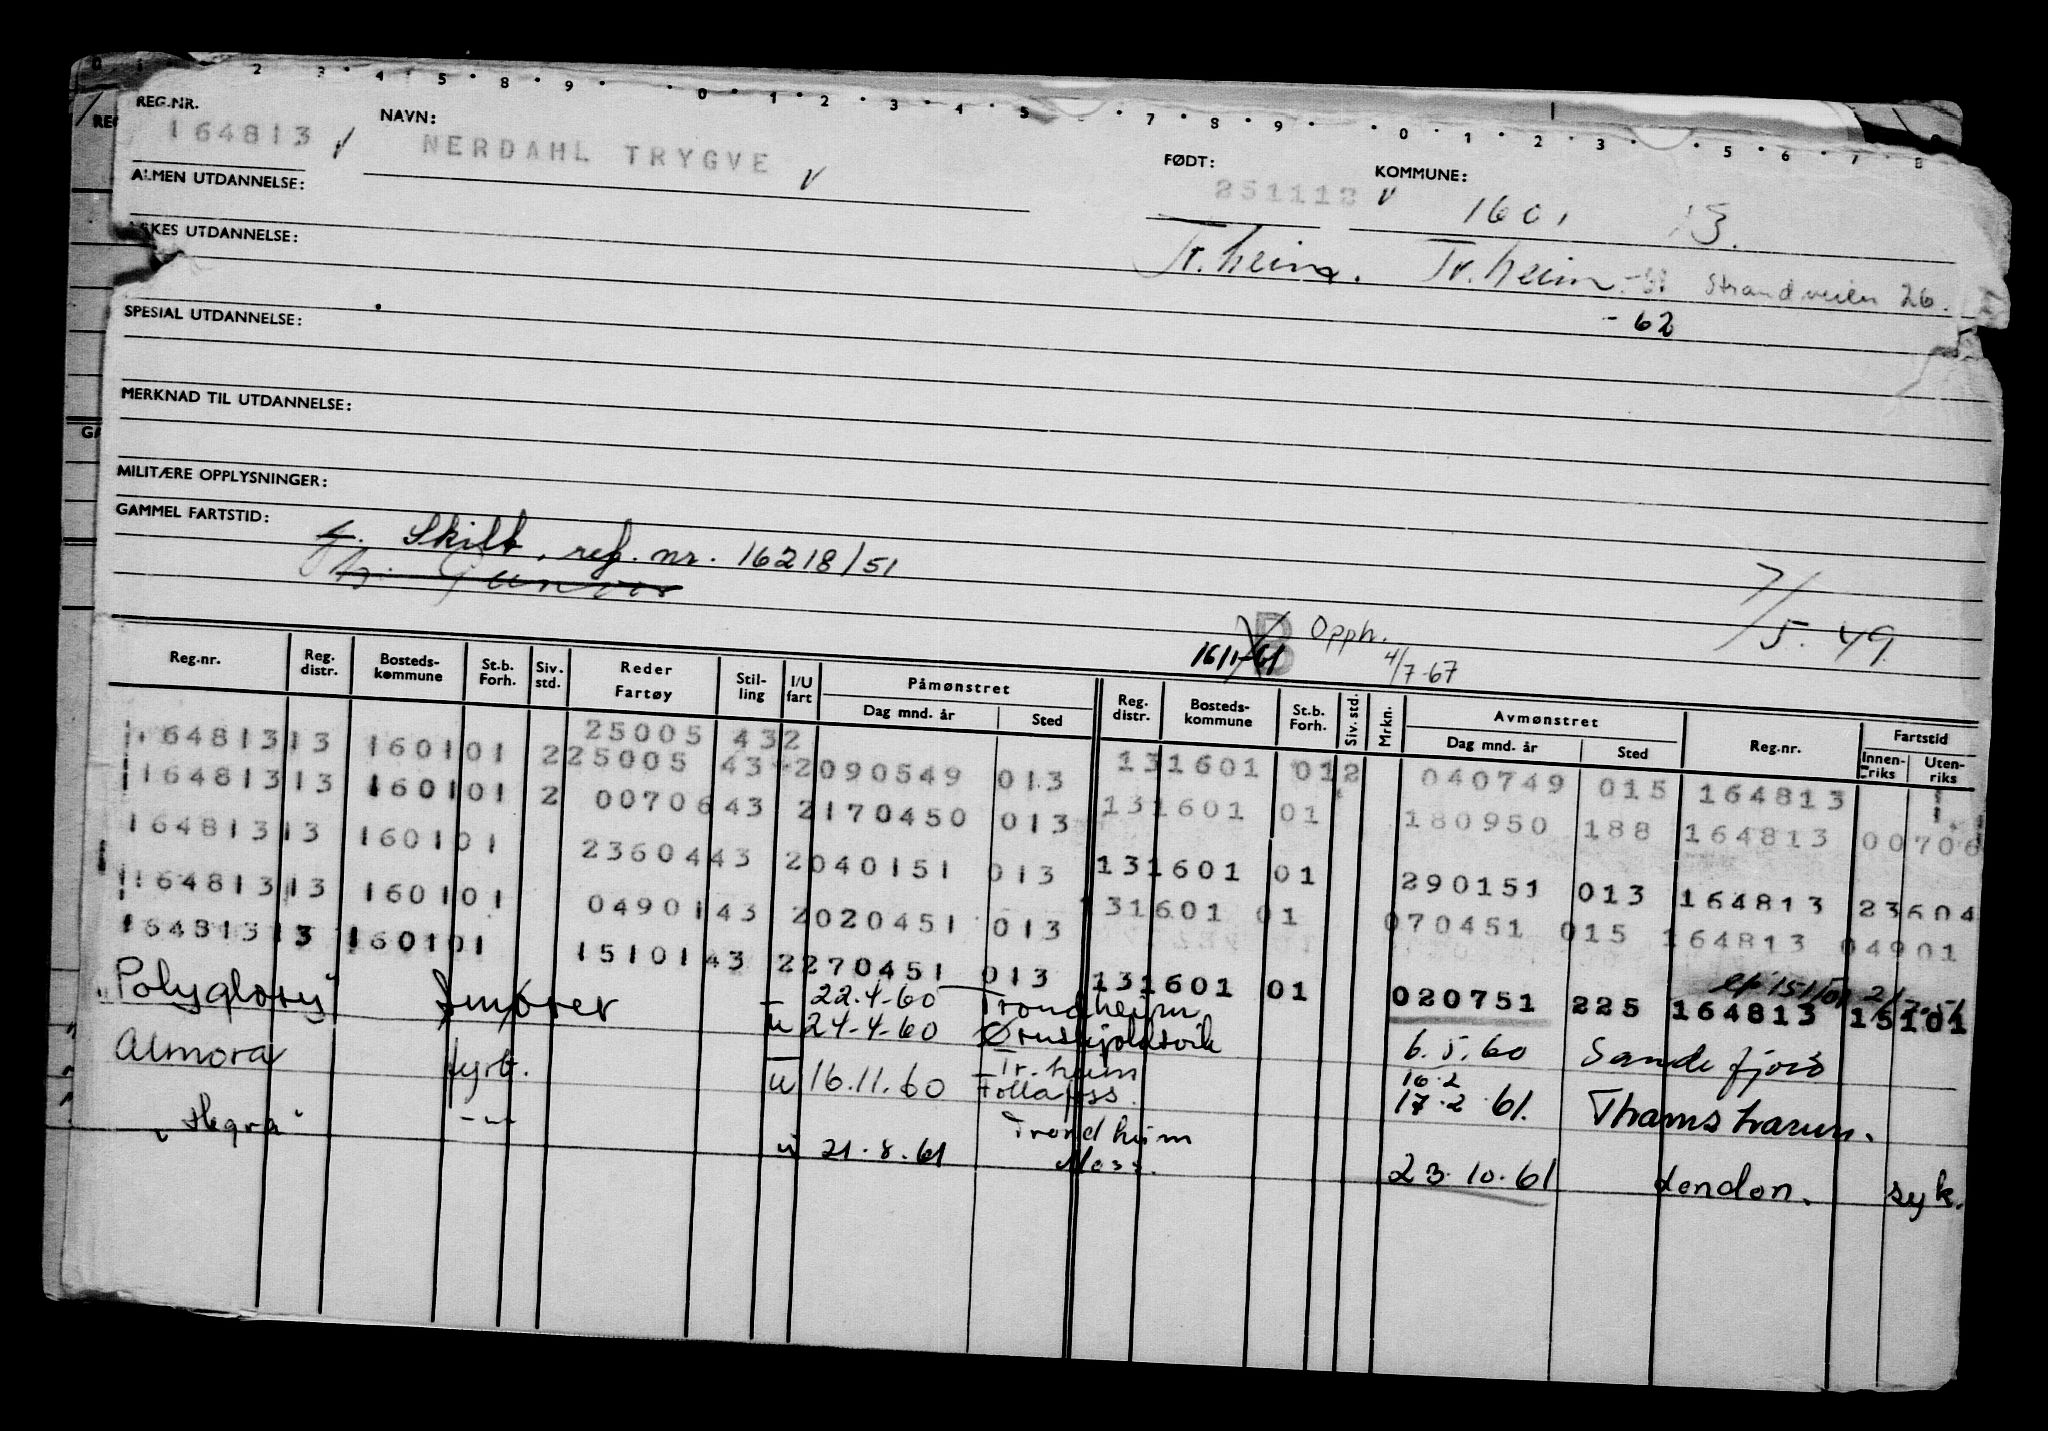 REG.NR.
164813
NAVN:
NERDAHL TRYGVE
FØDT:
251112
KOMMUNE:
1601 13.
ALMEN UTDANNELSE:
Tr.heim. Tr.heim. -61 Strandveien 26.
-62
UTDANNELSE:
SPESIAL UTDANNELSE:
MERKNAD TIL UTDANNELSE:
MILITÆRE OPPLYSNINGER:
GAMMEL FARTSTID:
Skilt, ref. nr. 16218/51
7/5.49
16/1-61 B Opph. 4/7-67
Reg.nr. Reg. distr. Bosteds- kommune St.b. Forh. Siv. std. Reder Fartøy Stil- ling I/U fart Påmønstret Dag mnd. år Sted Reg. distr. Bosteds- kommune St.b. Forh. Siv. std. Mrkn. Avmønstret Dag mnd. år Sted Reg.nr. Fartstid Innen- riks Uten- riks
25005 432
164813 13 1601 01 2 25005 43 2 090549 013 13 1601 01 2 040749 015 164813
164813 13 1601 01 2 00706 43 2 170450 013 13 1601 01 180950 188 164813 00706
164813 13 1601 01 23604 43 2 040151 013 13 1601 01 290151 013 164813 23604
164813 13 1601 01 04901 43 2 020451 013 31601 01 070451 015 164813 04901
164813 13 1601 01 15101 43 2 270451 013 13 1601 01 020751 225 164813 15101
"Polyglory" 22.4-60 Trondheim
u 24-4-60 6.5.60 Sandefjord
Almora fyrb. u 16.11.60 Tr.heim Follafoss 16.2 17.2.61. Thamshavn.
"Hegra" -"- u 21.8.61 Trondheim Moss. 23.10.61 London. syk.